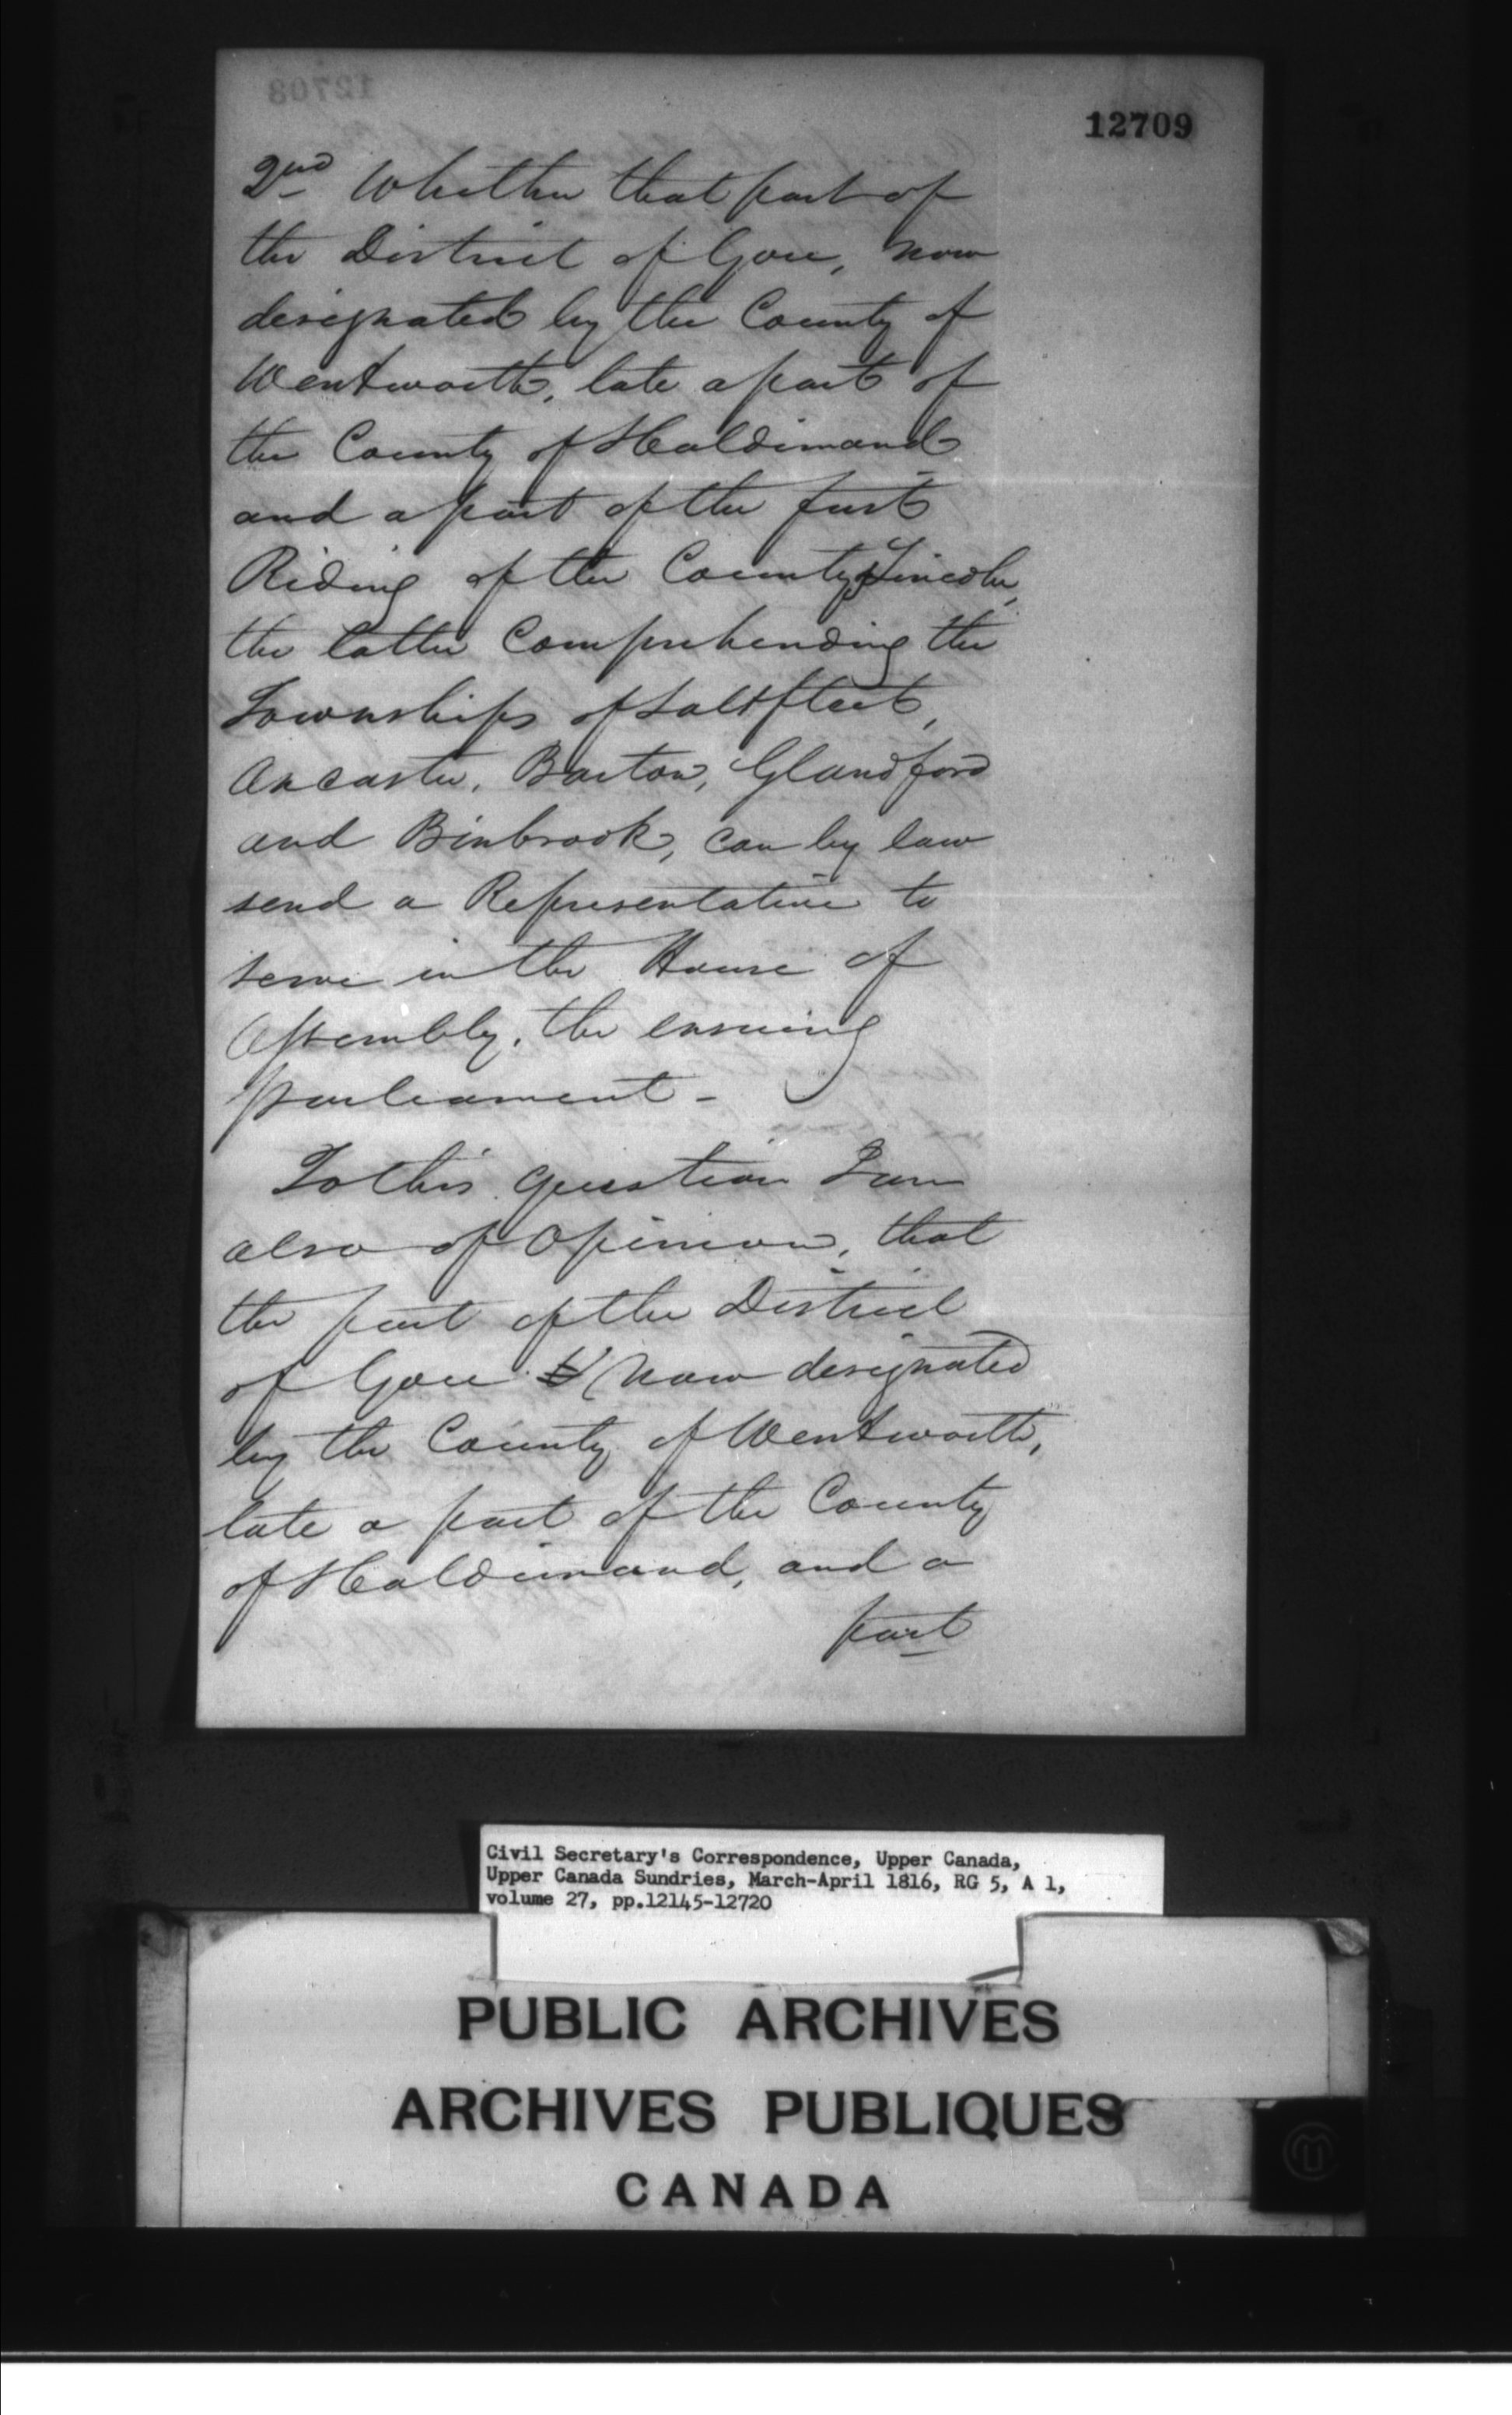 12709
2nd Whether that part of
the District of Gore, now
designated by the County of
Wentworth, late a part of
the County of Haldimand
and a part of the first
Riding of the County of Lincoln,
the latter Comprehending the
Townships of Saltfleet,
Ancaster, Barton, Glandford
and Binbrook, can by law
send a Representative to
serve in the House of
Assembly, the ensuing
parliament -
To this question I am
also of Opinion, that
the part of the District
of Gore now designated
by the County of Wentworth,
late a part of the County
of Haldimand, and a
part
Civil Secretary's Correspondence, Upper Canada,
Upper Canada Sundries, March-April 1816, RG 5, A 1,
volume 27, pp.12145-12720
PUBLIC ARCHIVES
ARCHIVES PUBLIQUES
CANADA